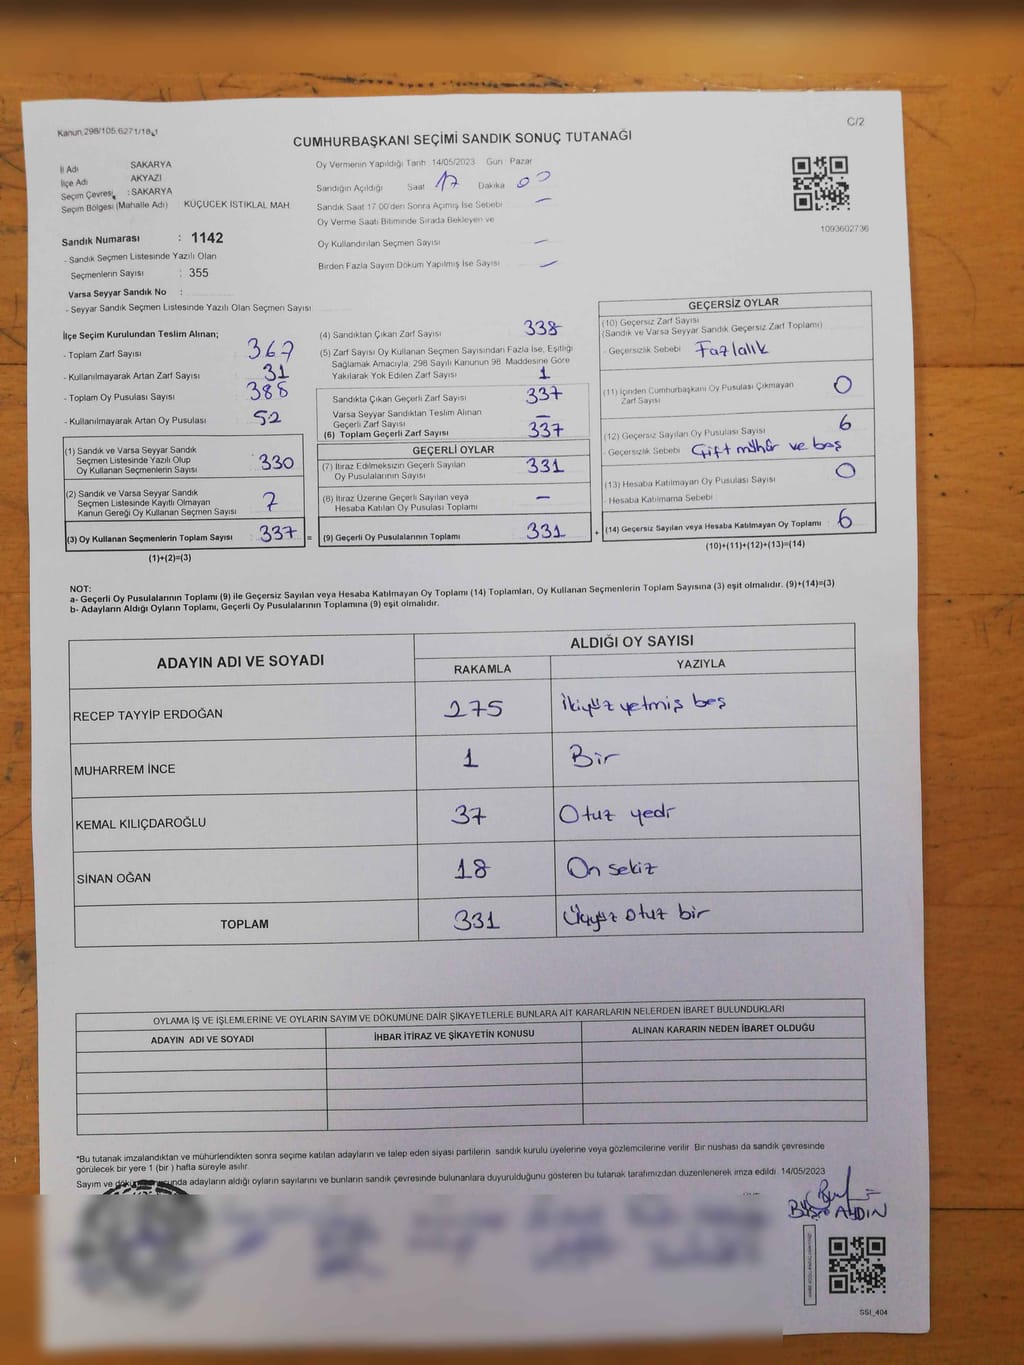 Kanun.298/105,6271/18,1
C/2
CUMHURBAŞKANI SEÇİMİ SANDIK SONUÇ TUTANAĞI
İl Adı SAKARYA
İlçe Adı AKYAZI
Seçim Çevresi : SAKARYA
Seçim Bölgesi (Mahalle Adı) KÜÇÜCEK İSTİKLAL MAH.
Oy Vermenin Yapıldığı Tarih 14/05/2023 Gün Pazar
Sandığın Açıldığı Saat 17 Dakika 00
Sandık Saat 17.00'den Sonra Açımış İse Sebebi —
Oy Verme Saati Bitiminde Sırada Bekleyen ve
Oy Kullandırılan Seçmen Sayısı —
Birden Fazla Sayım Döküm Yapılmış İse Sayısı —
1093602736
Sandık Numarası : 1142
- Sandık Seçmen Listesinde Yazılı Olan
Seçmenlerin Sayısı : 355
Varsa Seyyar Sandık No :
- Seyyar Sandık Seçmen Listesinde Yazılı Olan Seçmen Sayısı
İlçe Seçim Kurulundan Teslim Alınan;
- Toplam Zarf Sayısı 367
- Kullanılmayarak Artan Zarf Sayısı 31
- Toplam Oy Pusulası Sayısı
- Kullanılmayarak Artan Oy Pusulası 52
(1) Sandık ve Varsa Seyyar Sandık
Seçmen Listesinde Yazılı Olup
Oy Kullanan Seçmenlerin Sayısı 330
(2) Sandık ve Varsa Seyyar Sandık
Seçmen Listesinde Kayıtlı Olmayan
Kanun Gereği Oy Kullanan Seçmen Sayısı 7
(3) Oy Kullanan Seçmenlerin Toplam Sayısı 337 =
(1)+(2)=(3)
(4) Sandıktan Çıkan Zarf Sayısı 338
(5) Zarf Sayısı Oy Kullanan Seçmen Sayısından Fazla İse, Eşitliği
Sağlamak Amacıyla; 298 Sayılı Kanunun 98. Maddesine Göre
Yakılarak Yok Edilen Zarf Sayısı 1
Sandıkta Çıkan Geçerli Zarf Sayısı 337
Varsa Seyyar Sandıktan Teslim Alınan
Geçerli Zarf Sayısı —
(6) Toplam Geçerli Zarf Sayısı 337
GEÇERLİ OYLAR
(7) İtiraz Edilmeksizin Geçerli Sayılan
Oy Pusulalarının Sayısı 331
(8) İtiraz Üzerine Geçerli Sayılan veya
Hesaba Katılan Oy Pusulası Toplamı —
(9) Geçerli Oy Pusulalarının Toplamı 331 +
GEÇERSİZ OYLAR
(10) Geçersiz Zarf Sayısı
(Sandık ve Varsa Seyyar Sandık Geçersiz Zarf Toplamı)
- Geçersizlik Sebebi Fazlalık
(11) İçinden Cumhurbaşkanı Oy Pusulası Çıkmayan
Zarf Sayısı 0
(12) Geçersiz Sayılan Oy Pusulası Sayısı 6
- Geçersizlik Sebebi Çift mühür ve boş
(13) Hesaba Katılmayan Oy Pusulası Sayısı 0
- Hesaba Katılmama Sebebi
(14) Geçersiz Sayılan veya Hesaba Katılmayan Oy Toplamı : 6
(10)+(11)+(12)+(13)=(14)
NOT:
a- Geçerli Oy Pusulalarının Toplamı (9) ile Geçersiz Sayılan veya Hesaba Katılmayan Oy Toplamı (14) Toplamları, Oy Kullanan Seçmenlerin Toplam Sayısına (3) eşit olmalıdır. (9)+(14)=(3)
b- Adayların Aldığı Oyların Toplamı, Geçerli Oy Pusulalarının Toplamına (9) eşit olmalıdır.
ADAYIN ADI VE SOYADI
ALDIĞI OY SAYISI
RAKAMLA YAZIYLA
RECEP TAYYİP ERDOĞAN 275 İkiyüz yetmiş beş
MUHARREM İNCE 1 Bir
KEMAL KILIÇDAROĞLU 37 Otuz yedi
SİNAN OĞAN 18 On sekiz
TOPLAM 331 Üçyüz otuz bir
OYLAMA İŞ VE İŞLEMLERİNE VE OYLARIN SAYIM VE DÖKÜMÜNE DAİR ŞİKAYETLERLE BUNLARA AİT KARARLARIN NELERDEN İBARET BULUNDUKLARI
ADAYIN ADI VE SOYADI İHBAR İTİRAZ VE ŞİKAYETİN KONUSU ALINAN KARARIN NEDEN İBARET OLDUĞU
*Bu tutanak imzalandıktan ve mühürlendikten sonra seçime katılan adayların ve talep eden siyasi partilerin sandık kurulu üyelerine veya gözlemcilerine verilir. Bir nüshası da sandık çevresinde
görülecek bir yere 1 (bir ) hafta süreyle asılır.
Sayım ve adayların aldığı oyların sayılarını ve bunların sandık çevresinde bulunanlara duyurulduğunu gösteren bu tutanak tarafımızdan düzenlenerek imza edildi. 14/05/2023
AYDIN
SSI_404